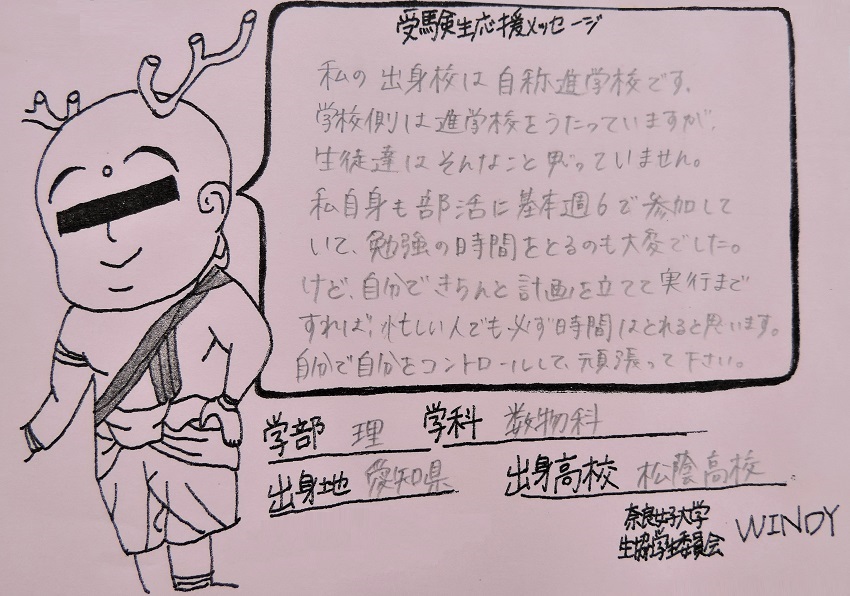 受験生応援メッセージ
私の出身校は自称進学校です。
学校側は進学校をうたっていますが、
生徒達はそんなこと思っていません。
私自身も部活に基本週6で参加して
いて、勉強の時間をとるのも大変でした。
けど、自分できちんと計画を立てて実行まで
すれば、忙しい人でも必ず時間はとれると思います。
自分で自分をコントロールして、頑張って下さい。
学部 理 学科 数物科
出身地 愛知県 出身高校 松蔭高校
奈良女子大学
生協学生委員会 WINDY